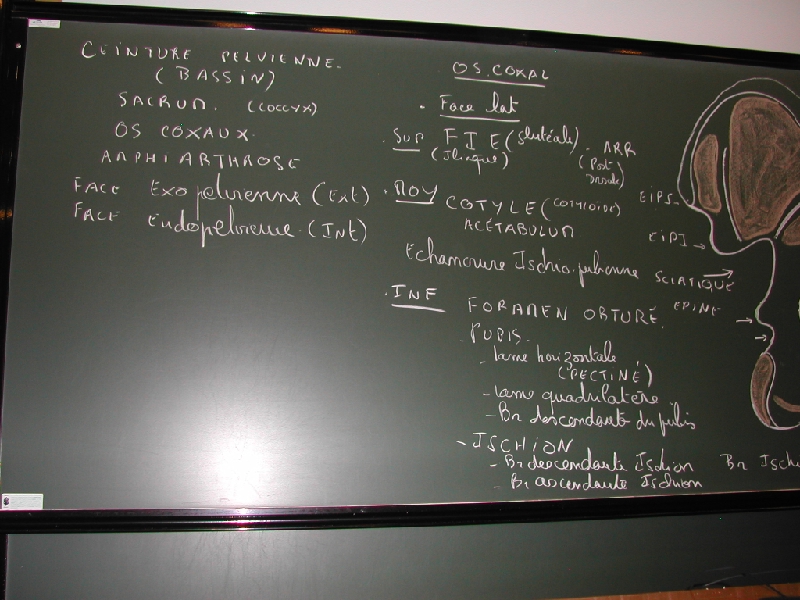 CEINTURE PELVIENNE.
(BASSIN)
SACRUM. (COCCYX)
OS COXAUX.
AMPHIARTHROSE
FACE Exopelvienne (Ext)
FACE Endopelvienne. (Int)
OS. COXAL
. Face lat
. SUP F I E (glutéale). ARR
(Iliaque) (Post)
EIPS
. MOY COTYLE (COTYLOIDE)
ACETABULUM
EIPI
Echancrure Ischio. pubienne SCIATIQUE
. INF FORAMEN OBTURÉ. EPINE
PUBIS.
- lame horizontale
(PECTINÉ)
- lame quadrilatère.
- Br descendante du pubis
- ISCHION
- Br descendante Ischion Br Ischi
- Br ascendante Ischion